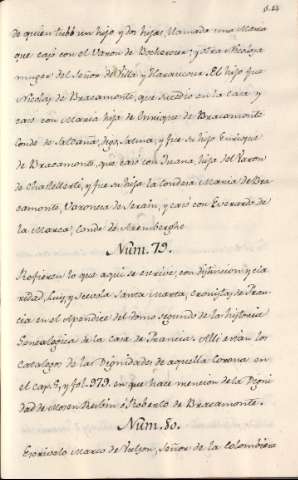 de quien tubó un hijo, y dos hijas, llamada una Maria
que casó con el Varon de Bocheroux: y otra Nicolasa
muger del Señor de Villa, y Haraucour. El hijo fue
Nicolas de Bracamonte, que sucedio en la casa y
casó con Maria hija de Enrrique de Bracamonte
Conde de Saldaña, digo, Salma; y fue su hijo Enrique
de Bracamonte, que casó con Juana, hija del Varon
de Chatellerte, y fue su hija la Condesa Maria de Bra
camonte, Varonesa de Serain, y casó con Everardo de
la Marca, Conde de Aremberghe
Núm. 79.
Refieren lo que aqui se escrive, con distincion, y cla
ridad, Luis, y Scevola Santa Marta, cronistas, de Fran
cia en el Apendice del tomo segundo de la historia
Genealogica de la casa de Francia. Alli estan los
catalogos de las Dignidades de aquella Corona en
el cap. 5, y fol. 979. en que hace mencion de la Digni
dad de Mosen Rubin ó Roberto de Bracamonte.
Núm. 80.
Escrivelo Marco de Vulson, Señor de la Colombiera